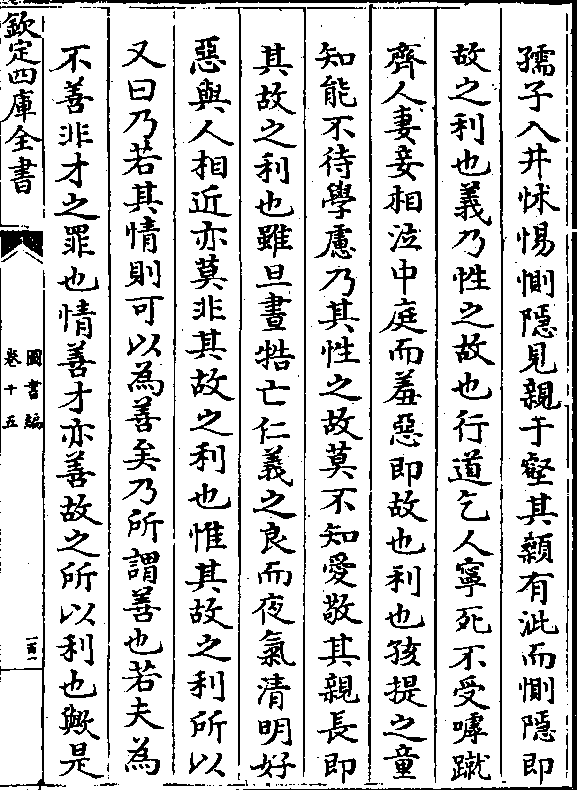 孺子入井怵惕惻隱見親于壑其顙有泚而惻隱即
故之利也義乃性之故也行道乞人寧死不受嘑蹴
齊人妻妾相泣中庭而羞惡即故也利也孩提之童
知能不待學慮乃其性之故莫不知愛敬其親長即
其故之利也雖旦晝牿亡仁義之良而夜氣清明好
惡與人相近亦莫非其故之利也惟其故之利所以
又曰乃若其情則可以為善矣乃所謂善也若夫為
不善非才之罪也情善才亦善故之所以利也歟是
欽定四庫全書
圖書編
卷十五